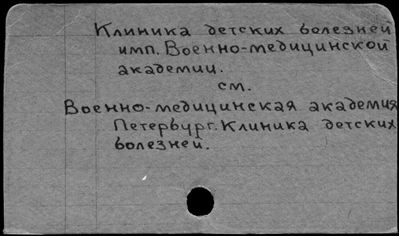 Клиника детских болезней
имп. Военно-медицинской
академии.
см.
Военно-медицинская академия
Петербург. Клиника детских
болезней.